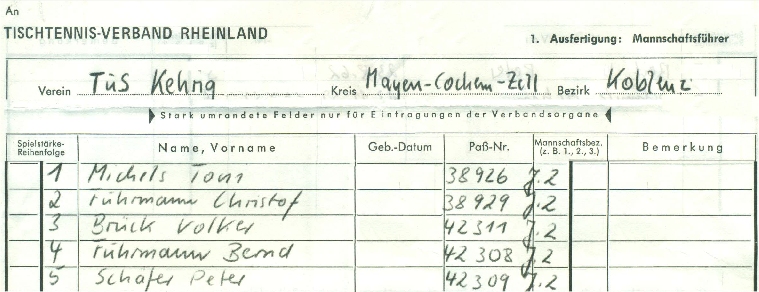 An
TISCHTENNIS-VERBAND RHEINLAND
1. Ausfertigung: Mannschaftsführer
Verein TuS Kehrig Kreis Mayen-Cochem-Zell Bezirk Koblenz
Stark umrandete Felder nur für Eintragungen der Verbandsorgane
Spielstärke-Reihenfolge Name, Vorname Geb.-Datum Paß-Nr. Mannschaftsbez. (z. B. 1., 2., 3.) Bemerkung
1 Michels Toni 38926 J.2
2 Fuhrmann Christof 38929 J.2
3 Brück Volker 42311 J.2
4 Fuhrmann Bernd 42308 J.2
5 Schäfer Peter 42309 J.2